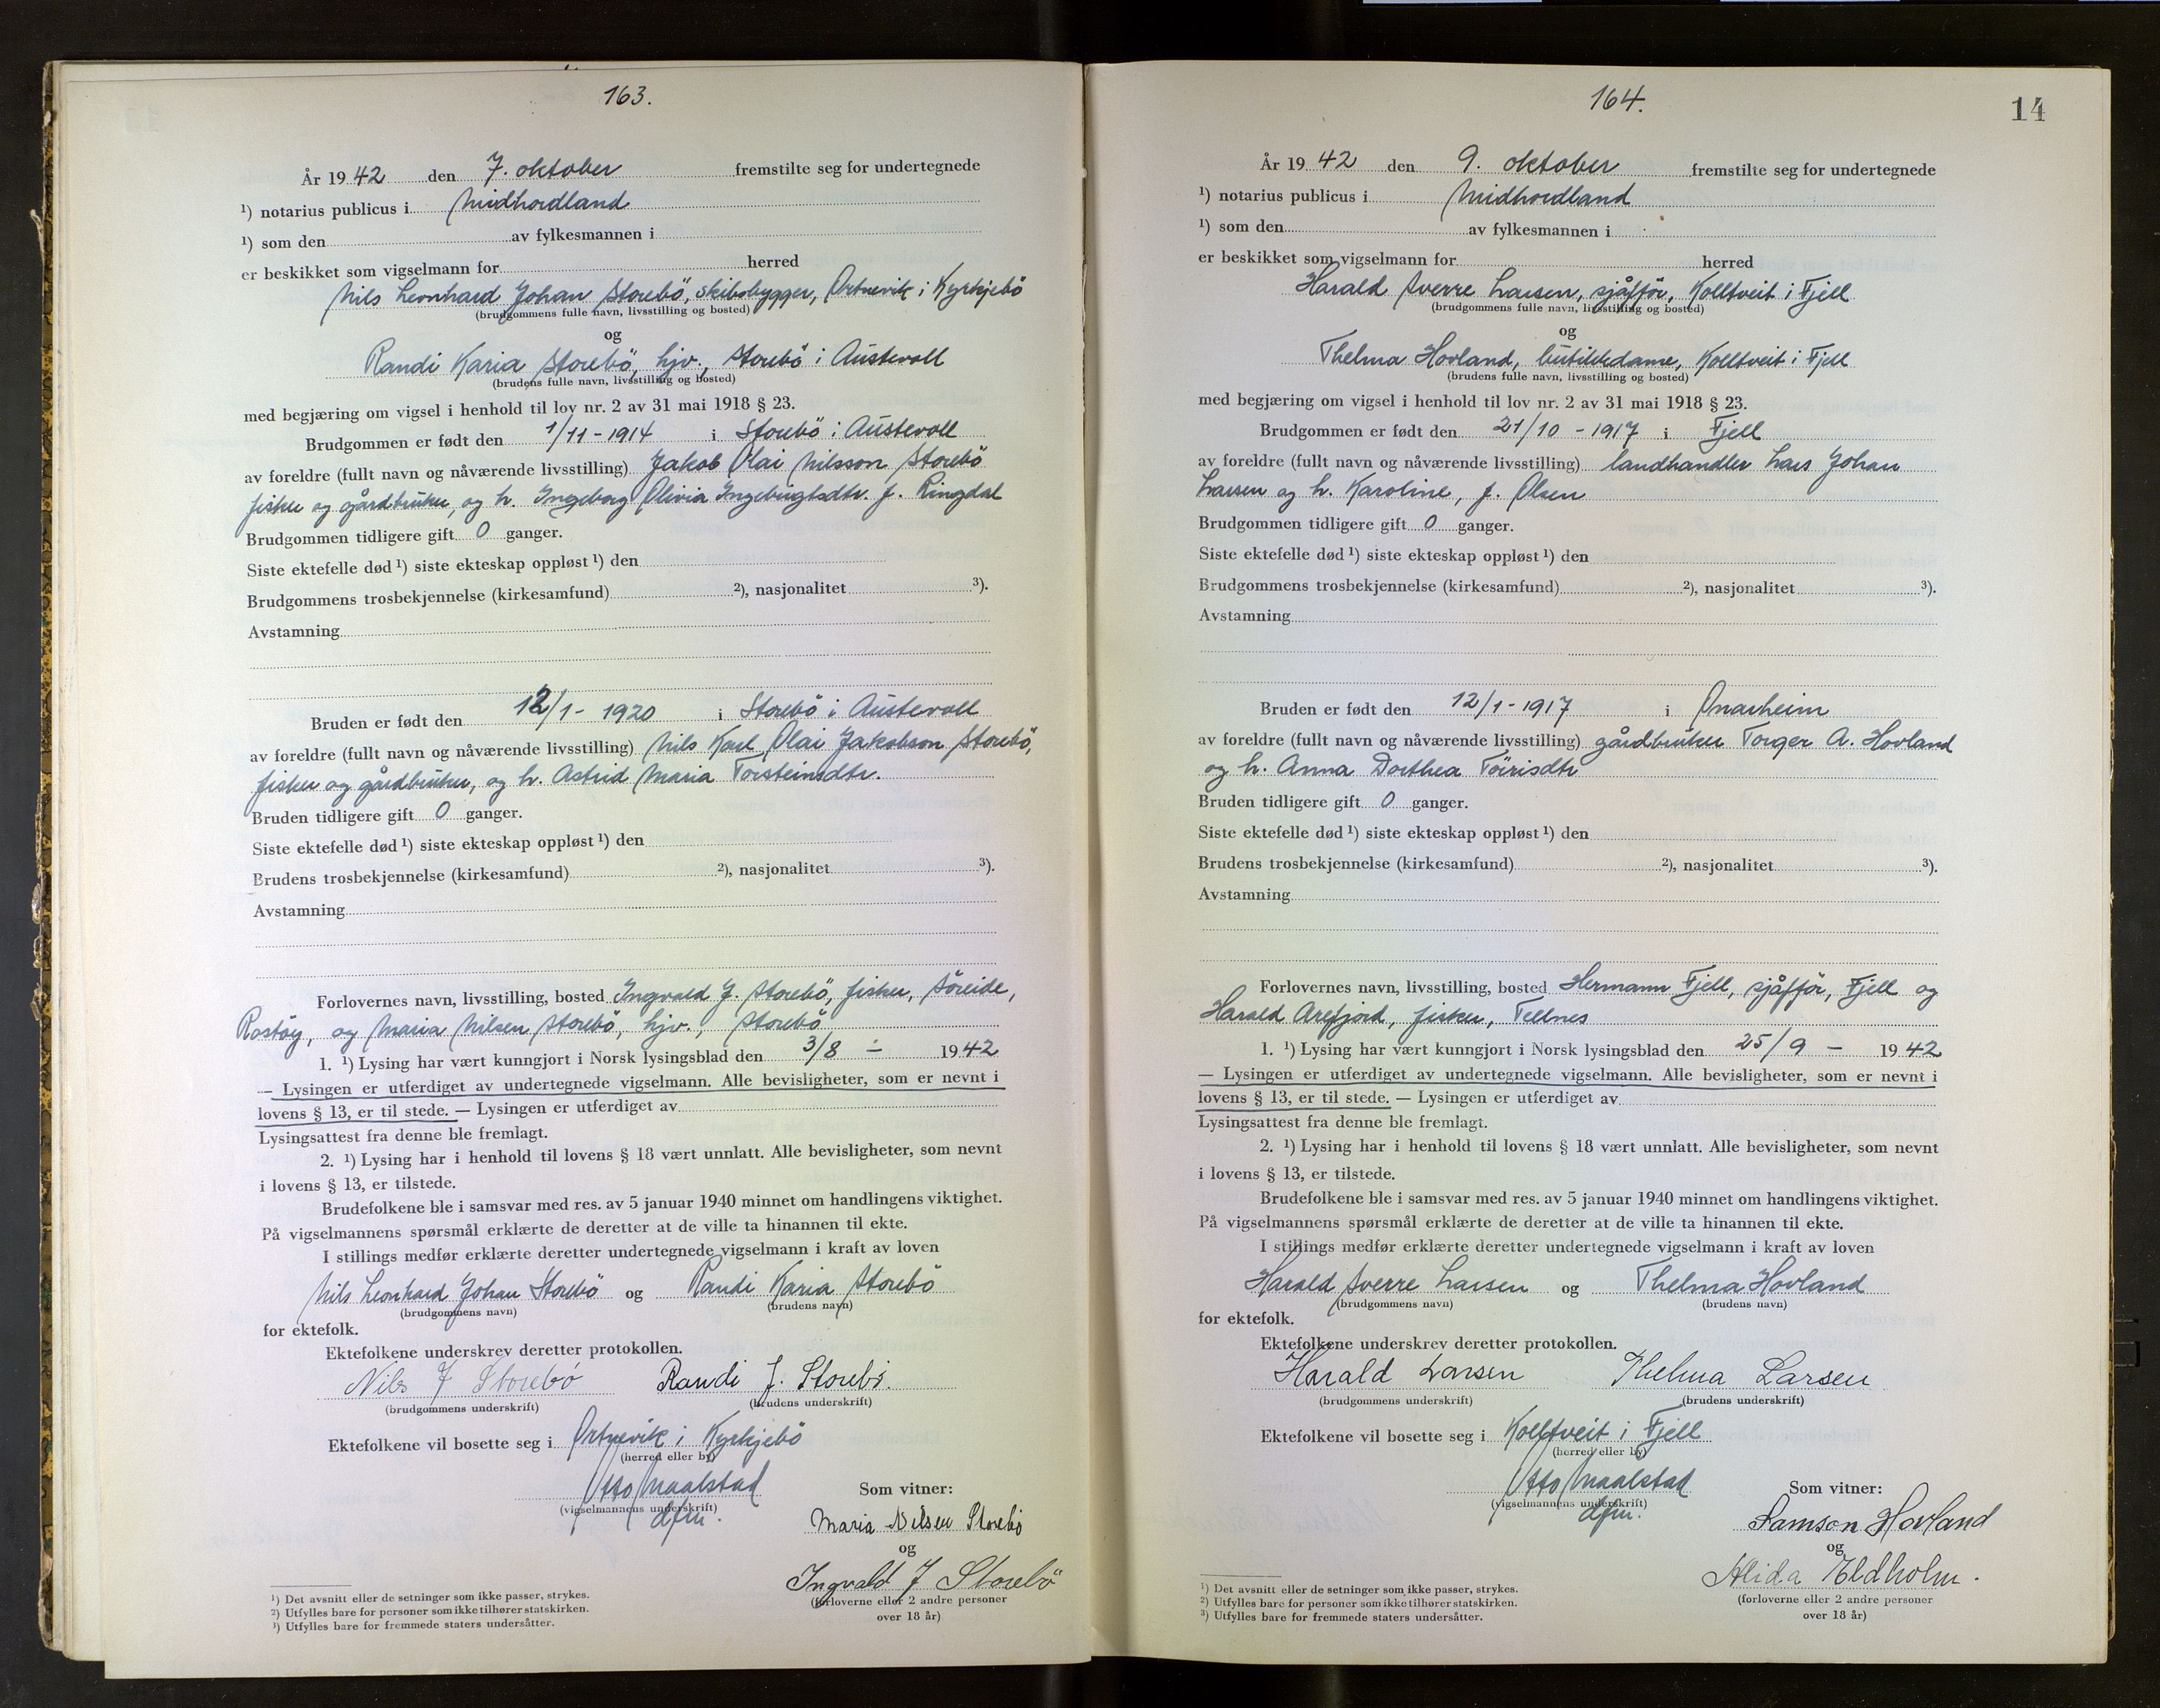 163.
År 1942 den 7. oktober fremstilte seg for undertegnede
¹) notarius publicus i Midhordland
¹) som den av fylkesmannen i
er beskikket som vigselmann for herred
Nils Leonhard Johan Storebö, skibsbygger, Ortnevik i Kyrkjebö
(brudgommens fulle navn, livsstilling og bosted)
og
Randi Karia Storebö, hjv., Storebö i Austevoll
(brudens fulle navn, livsstilling og bosted)
med begjæring om vigsel i henhold til lov nr. 2 av 31 mai 1918 § 23.
Brudgommen er født den 1/11 - 1914 i Storebö i Austevoll
av foreldre (fullt navn og nåværende livsstilling) Jakob Olai Nilsson Storebö
fisker og gårdbruker, og h. Ingeborg Olivia Ingebrigtsdtr. f. Ringdal
Brudgommen tidligere gift 0 ganger.
Siste ektefelle død ¹) siste ekteskap oppløst ¹) den
Brudgommens trosbekjennelse (kirkesamfund) ²), nasjonalitet ³).
Avstamning
Bruden er født den 12/1 - 1920 i Storebö i Austevoll
av foreldre (fullt navn og nåværende livsstilling) Nils Karl Olai Jakobson Storebö,
fisker og gårdbruker, og h. Astrid Maria Torsteinsdtr.
Bruden tidligere gift 0 ganger.
Siste ektefelle død ¹) siste ekteskap oppløst ¹) den
Brudens trosbekjennelse (kirkesamfund) ²), nasjonalitet ³).
Avstamning
Forlovernes navn, livsstilling, bosted Ingvald J. Storebö, fisker, Söreide,
Rostöy, og Maria Nilsen Storebö, hjv., Storebö
1. ¹) Lysing har vært kunngjort i Norsk lysingsblad den 3/8 - 1942
— Lysingen er utferdiget av undertegnede vigselmann. Alle bevisligheter, som er nevnt i
lovens § 13, er til stede. — Lysingen er utferdiget av
Lysingsattest fra denne ble fremlagt.
2. ¹) Lysing har i henhold til lovens § 18 vært unnlatt. Alle bevisligheter, som nevnt
i lovens § 13, er tilstede.
Brudefolkene ble i samsvar med res. av 5 januar 1940 minnet om handlingens viktighet.
På vigselmannens spørsmål erklærte de deretter at de ville ta hinannen til ekte.
I stillings medfør erklærte deretter undertegnede vigselmann i kraft av loven
Nils Leonhard Johan Storebö og Randi Karia Storebö
(brudgommens navn) (brudens navn)
for ektefolk.
Ektefolkene underskrev deretter protokollen.
Nils J Storebö Randi J. Storebö.
(brudgommens underskrift) (brudens underskrift)
Ektefolkene vil bosette seg i Ortnevik i Kyrkjebö
(herred eller by)
Otto Maalstad
(vigselmannens underskrift)
dfm.
Som vitner:
Maria Nilsen Storebö
og
Ingvald J Storebö
(forloverne eller 2 andre personer
over 18 år)
¹) Det avsnitt eller de setninger som ikke passer, strykes.
²) Utfylles bare for personer som ikke tilhører statskirken.
³) Utfylles bare for fremmede staters undersåtter.
164.
14
År 1942 den 9. oktober fremstilte seg for undertegnede
¹) notarius publicus i Midhordland
¹) som den av fylkesmannen i
er beskikket som vigselmann for herred
Harald Sverre Larsen, sjåfför, Kolltveit i Fjell
(brudgommens fulle navn, livsstilling og bosted)
og
Thelma Hovland, butikkdame, Kolltveit i Fjell
(brudens fulle navn, livsstilling og bosted)
med begjæring om vigsel i henhold til lov nr. 2 av 31 mai 1918 § 23.
Brudgommen er født den 21/10 - 1917 i Fjell
av foreldre (fullt navn og nåværende livsstilling) landhandler Lars Johan
Larsen og h. Karoline, f. Olsen
Brudgommen tidligere gift 0 ganger.
Siste ektefelle død ¹) siste ekteskap oppløst ¹) den
Brudgommens trosbekjennelse (kirkesamfund) ²), nasjonalitet ³).
Avstamning
Bruden er født den 12/1 - 1917 i Onarheim
av foreldre (fullt navn og nåværende livsstilling) gårdbruker Torger A. Hovland
og h. Anna Dorthea
Bruden tidligere gift 0 ganger.
Siste ektefelle død ¹) siste ekteskap oppløst ¹) den
Brudens trosbekjennelse (kirkesamfund) ²), nasjonalitet ³).
Avstamning
Forlovernes navn, livsstilling, bosted Hermann Fjell, sjåfför, Fjell og
Harald Arefjord, fisker, Tellnes
1. ¹) Lysing har vært kunngjort i Norsk lysingsblad den 25/9 - 1942
— Lysingen er utferdiget av undertegnede vigselmann. Alle bevisligheter, som er nevnt i
lovens § 13, er til stede. — Lysingen er utferdiget av
Lysingsattest fra denne ble fremlagt.
2. ¹) Lysing har i henhold til lovens § 18 vært unnlatt. Alle bevisligheter, som nevnt
i lovens § 13, er tilstede.
Brudefolkene ble i samsvar med res. av 5 januar 1940 minnet om handlingens viktighet.
På vigselmannens spørsmål erklærte de deretter at de ville ta hinannen til ekte.
I stillings medfør erklærte deretter undertegnede vigselmann i kraft av loven
Harald Sverre Larsen og Thelma Hovland
(brudgommens navn) (brudens navn)
for ektefolk.
Ektefolkene underskrev deretter protokollen.
Harald Larsen Thelma Larsen
(brudgommens underskrift) (brudens underskrift)
Ektefolkene vil bosette seg i Kolltveit i Fjell
(herred eller by)
Otto Maalstad
(vigselmannens underskrift)
dfm.
Som vitner:
Samson Hovland
og
Alida Eldholm.
(forloverne eller 2 andre personer
over 18 år)
¹) Det avsnitt eller de setninger som ikke passer, strykes.
²) Utfylles bare for personer som ikke tilhører statskirken.
³) Utfylles bare for fremmede staters undersåtter.